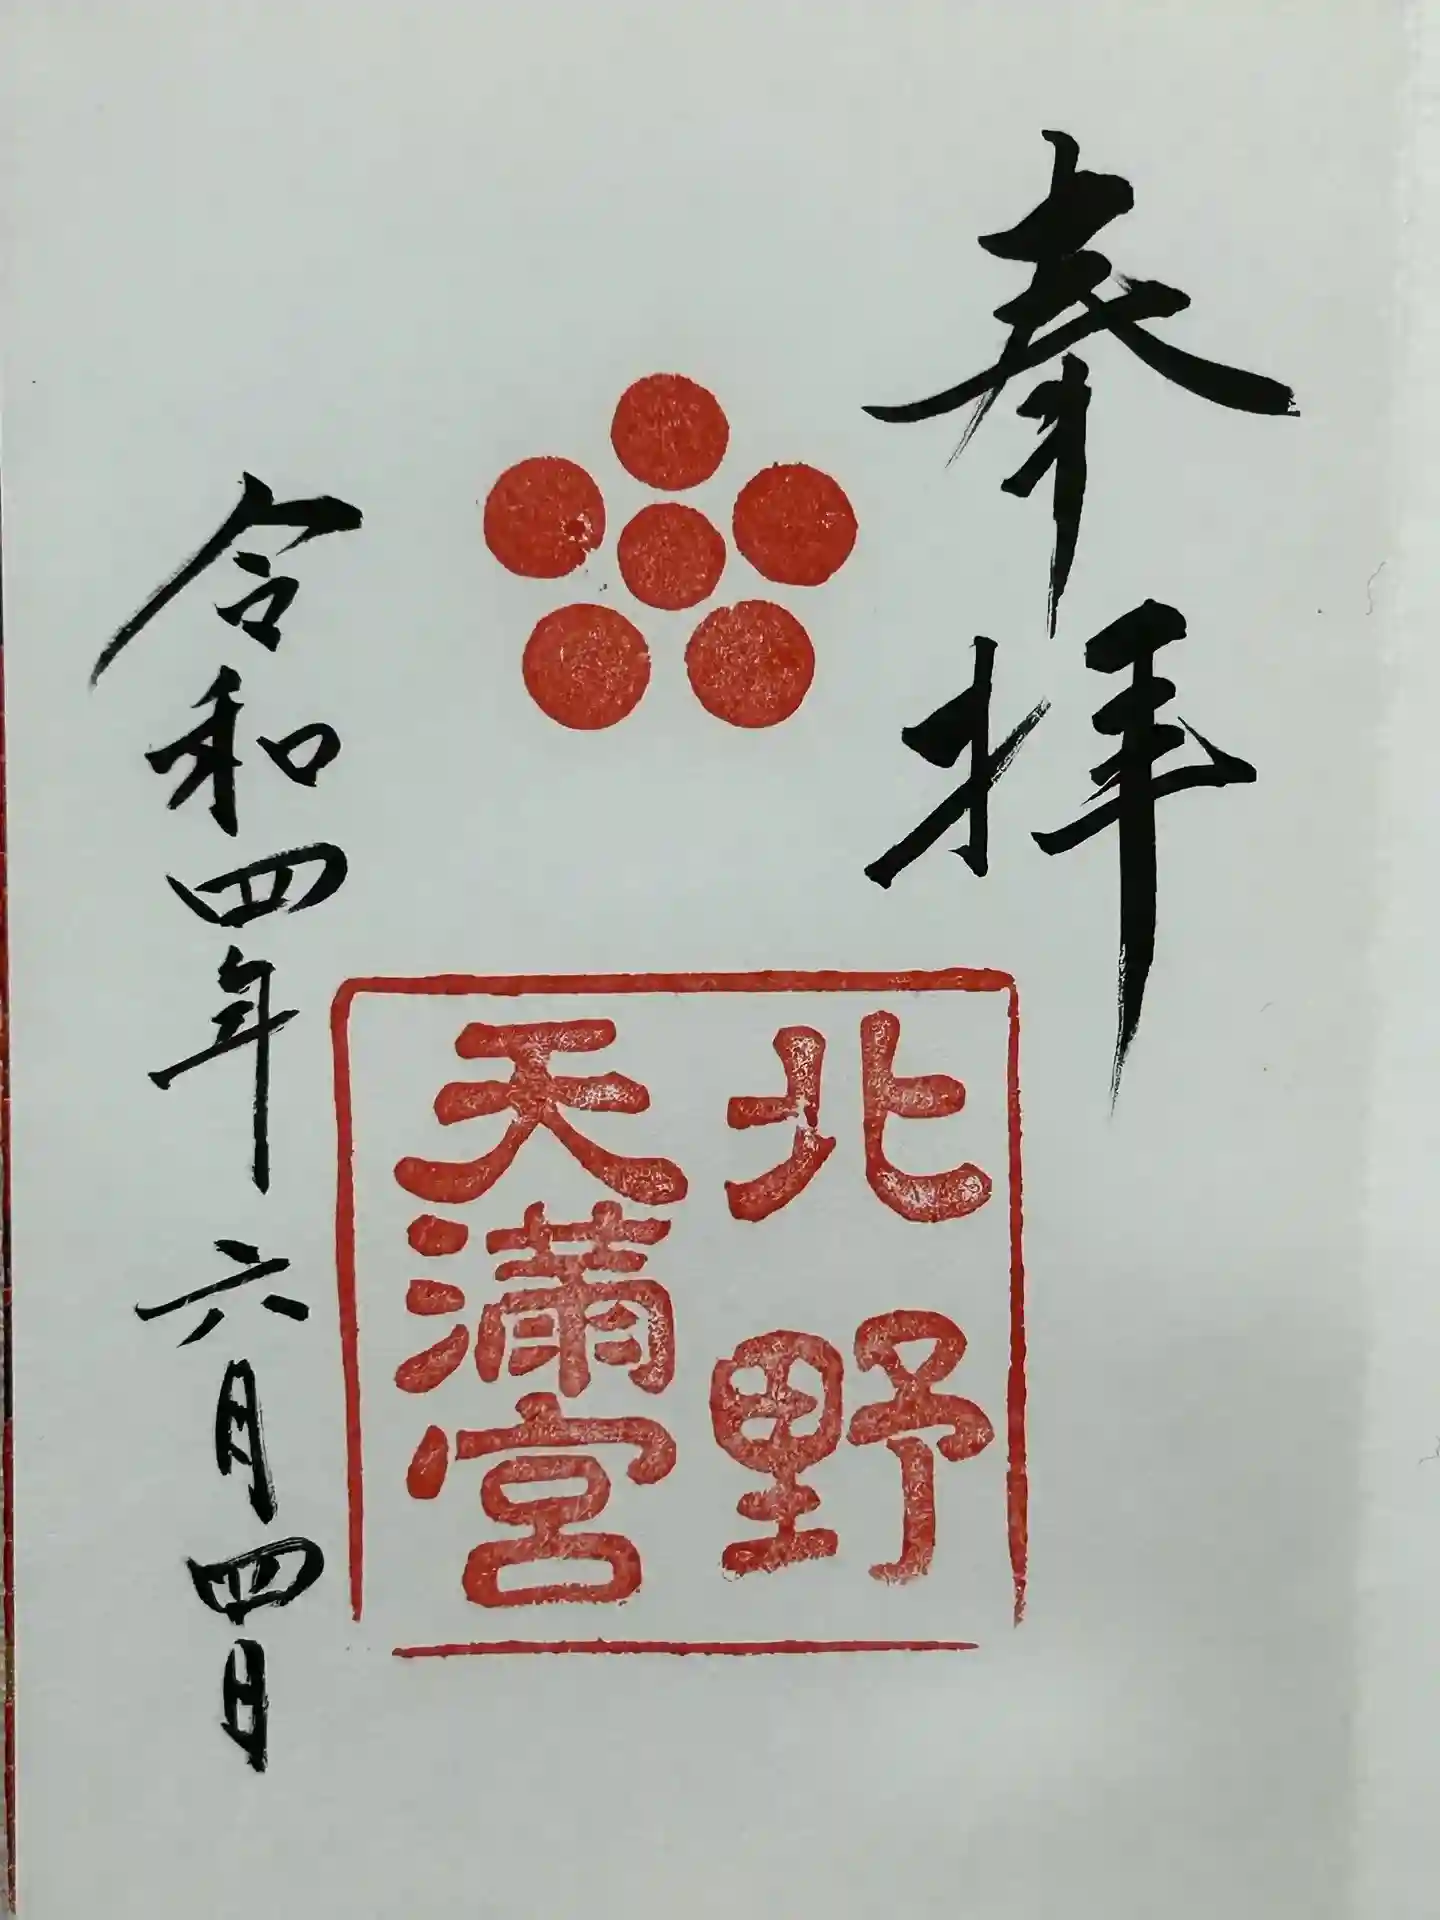 奉拝
北野
天満宮
令和四年六月四日